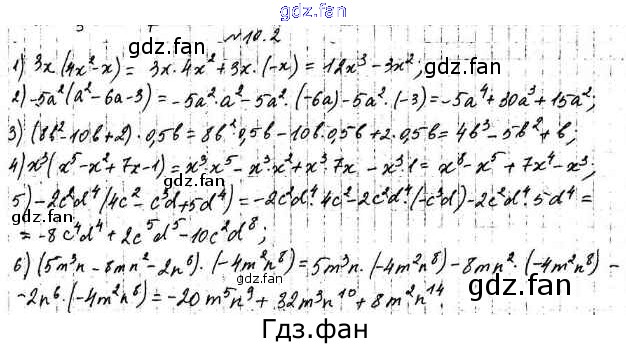 gdz.fan
№10.2
1) 3x(4x²-x) = 3x·4x²+3x·(-x) = 12x³-3x²;
gdz.fan gdz.fan
2) -5a²(a²-6a-3) = -5a²·a²-5a²·(-6a)-5a²·(-3) = -5a⁴+30a³+15a²;
3) (8b²-10b+2)·0,5b = 8b²·0,5b-10b·0,5b+2·0,5b = 4b³-5b²+b;
4) x³(x⁵-x²+7x-1) = x³·x⁵-x³·x²+x³·7x-x³·1 = x⁸-x⁵+7x⁴-x³;
gdz.fan gdz.fan
5) -2c²d⁴(4c²-c³d+5d⁴) = -2c²d⁴·4c²-2c²d⁴·(-c³d)-2c²d⁴·5d⁴ =
= -8c⁴d⁴+2c⁵d⁵-10c²d⁸;
6) (5m³n-8mn²-2n⁶)·(-4m²n⁸) = 5m³n·(-4m²n⁸)-8mn²·(-4m²n⁸)-
-2n⁶·(-4m²n⁸) = -20m⁵n⁹+32m³n¹⁰+8m²n¹⁴.
gdz.fan gdz.fan
Гдз.фан